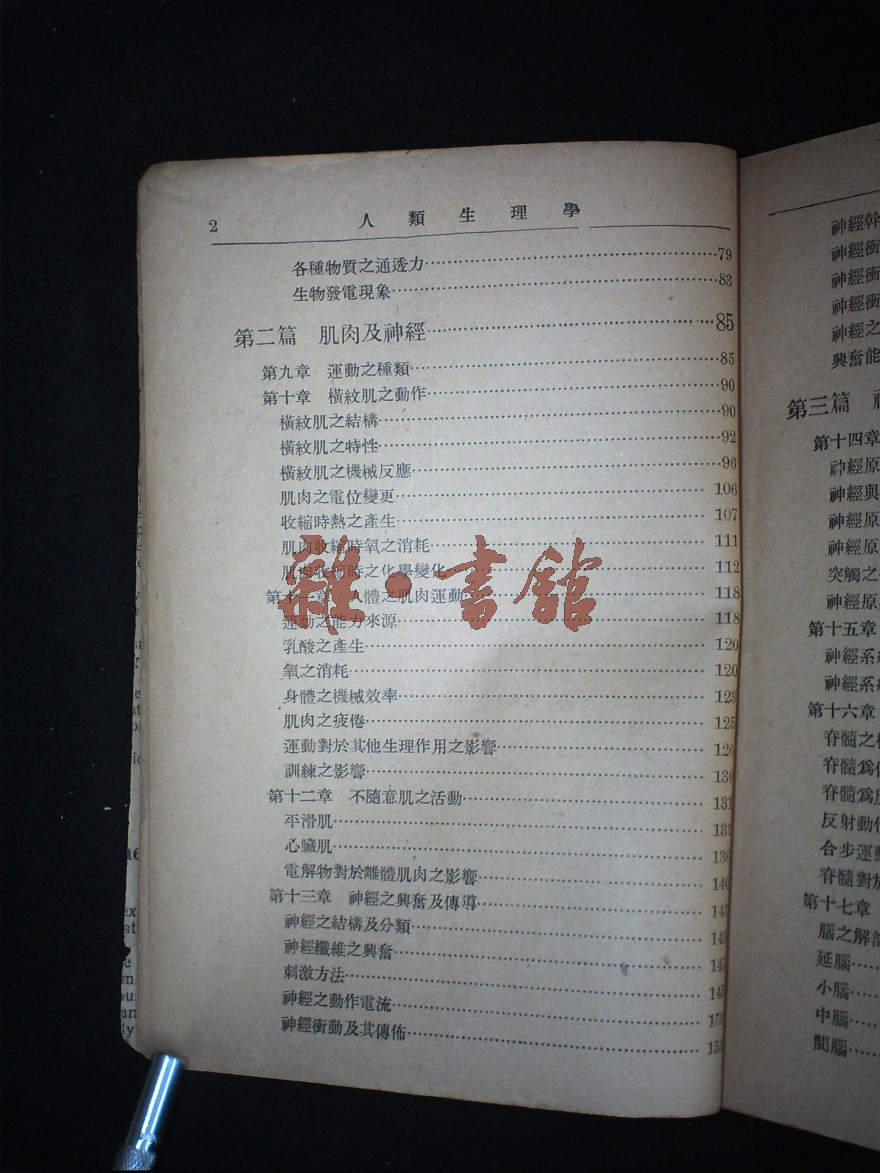 2 人類生理學
各種物質之通透力……79
生物發電現象……83
第二篇 肌肉及神經……85
第九章 運動之種類……85
第十章 橫紋肌之動作……90
橫紋肌之結構……90
橫紋肌之特性……92
橫紋肌之機械反應……96
肌肉之電位變更……106
收縮時熱之產生……107
肌肉收縮時氧之消耗……111
肌肉收縮時之化學變化……112
第十一章 人體之肌肉運動……118
運動之能力來源……118
乳酸之產生……120
氧之消耗……120
身體之機械效率……123
肌肉之疲倦……125
運動對於其他生理作用之影響……126
訓練之影響……130
第十二章 不隨意肌之活動……131
平滑肌……131
心臟肌……136
電解物對於離體肌肉之影響……140
第十三章 神經之興奮及傳導……
神經之結構及分類……
神經纖維之興奮……
刺激方法……
神經之動作電流……
神經衝動及其傳佈……
雜·書館
神經幹
神經衝
神經衝
神經衝
神經之
興奮能
第三篇
第十四章
神經原
神經興
神經原
神經原
突觸之
神經原
第十五章
神經系
神經系
第十六章
脊髓之
脊髓爲
脊髓爲
反射動
合步運
脊髓對
第十七章
腦之解
延腦……
小腦……
中腦……
間腦……